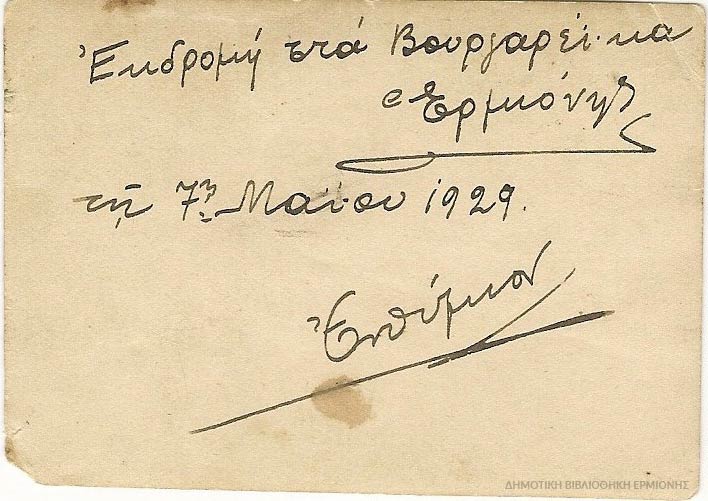 Ἐκδρομή στά Βουργαρέϊκα
Ἑρμιόνης
τῇ 7ῃ Μαΐου 1929.
Ἐνθύμιον
ΔΗΜΟΤΙΚΗ ΒΙΒΛΙΟΘΗΚΗ ΕΡΜΙΟΝΗΣ